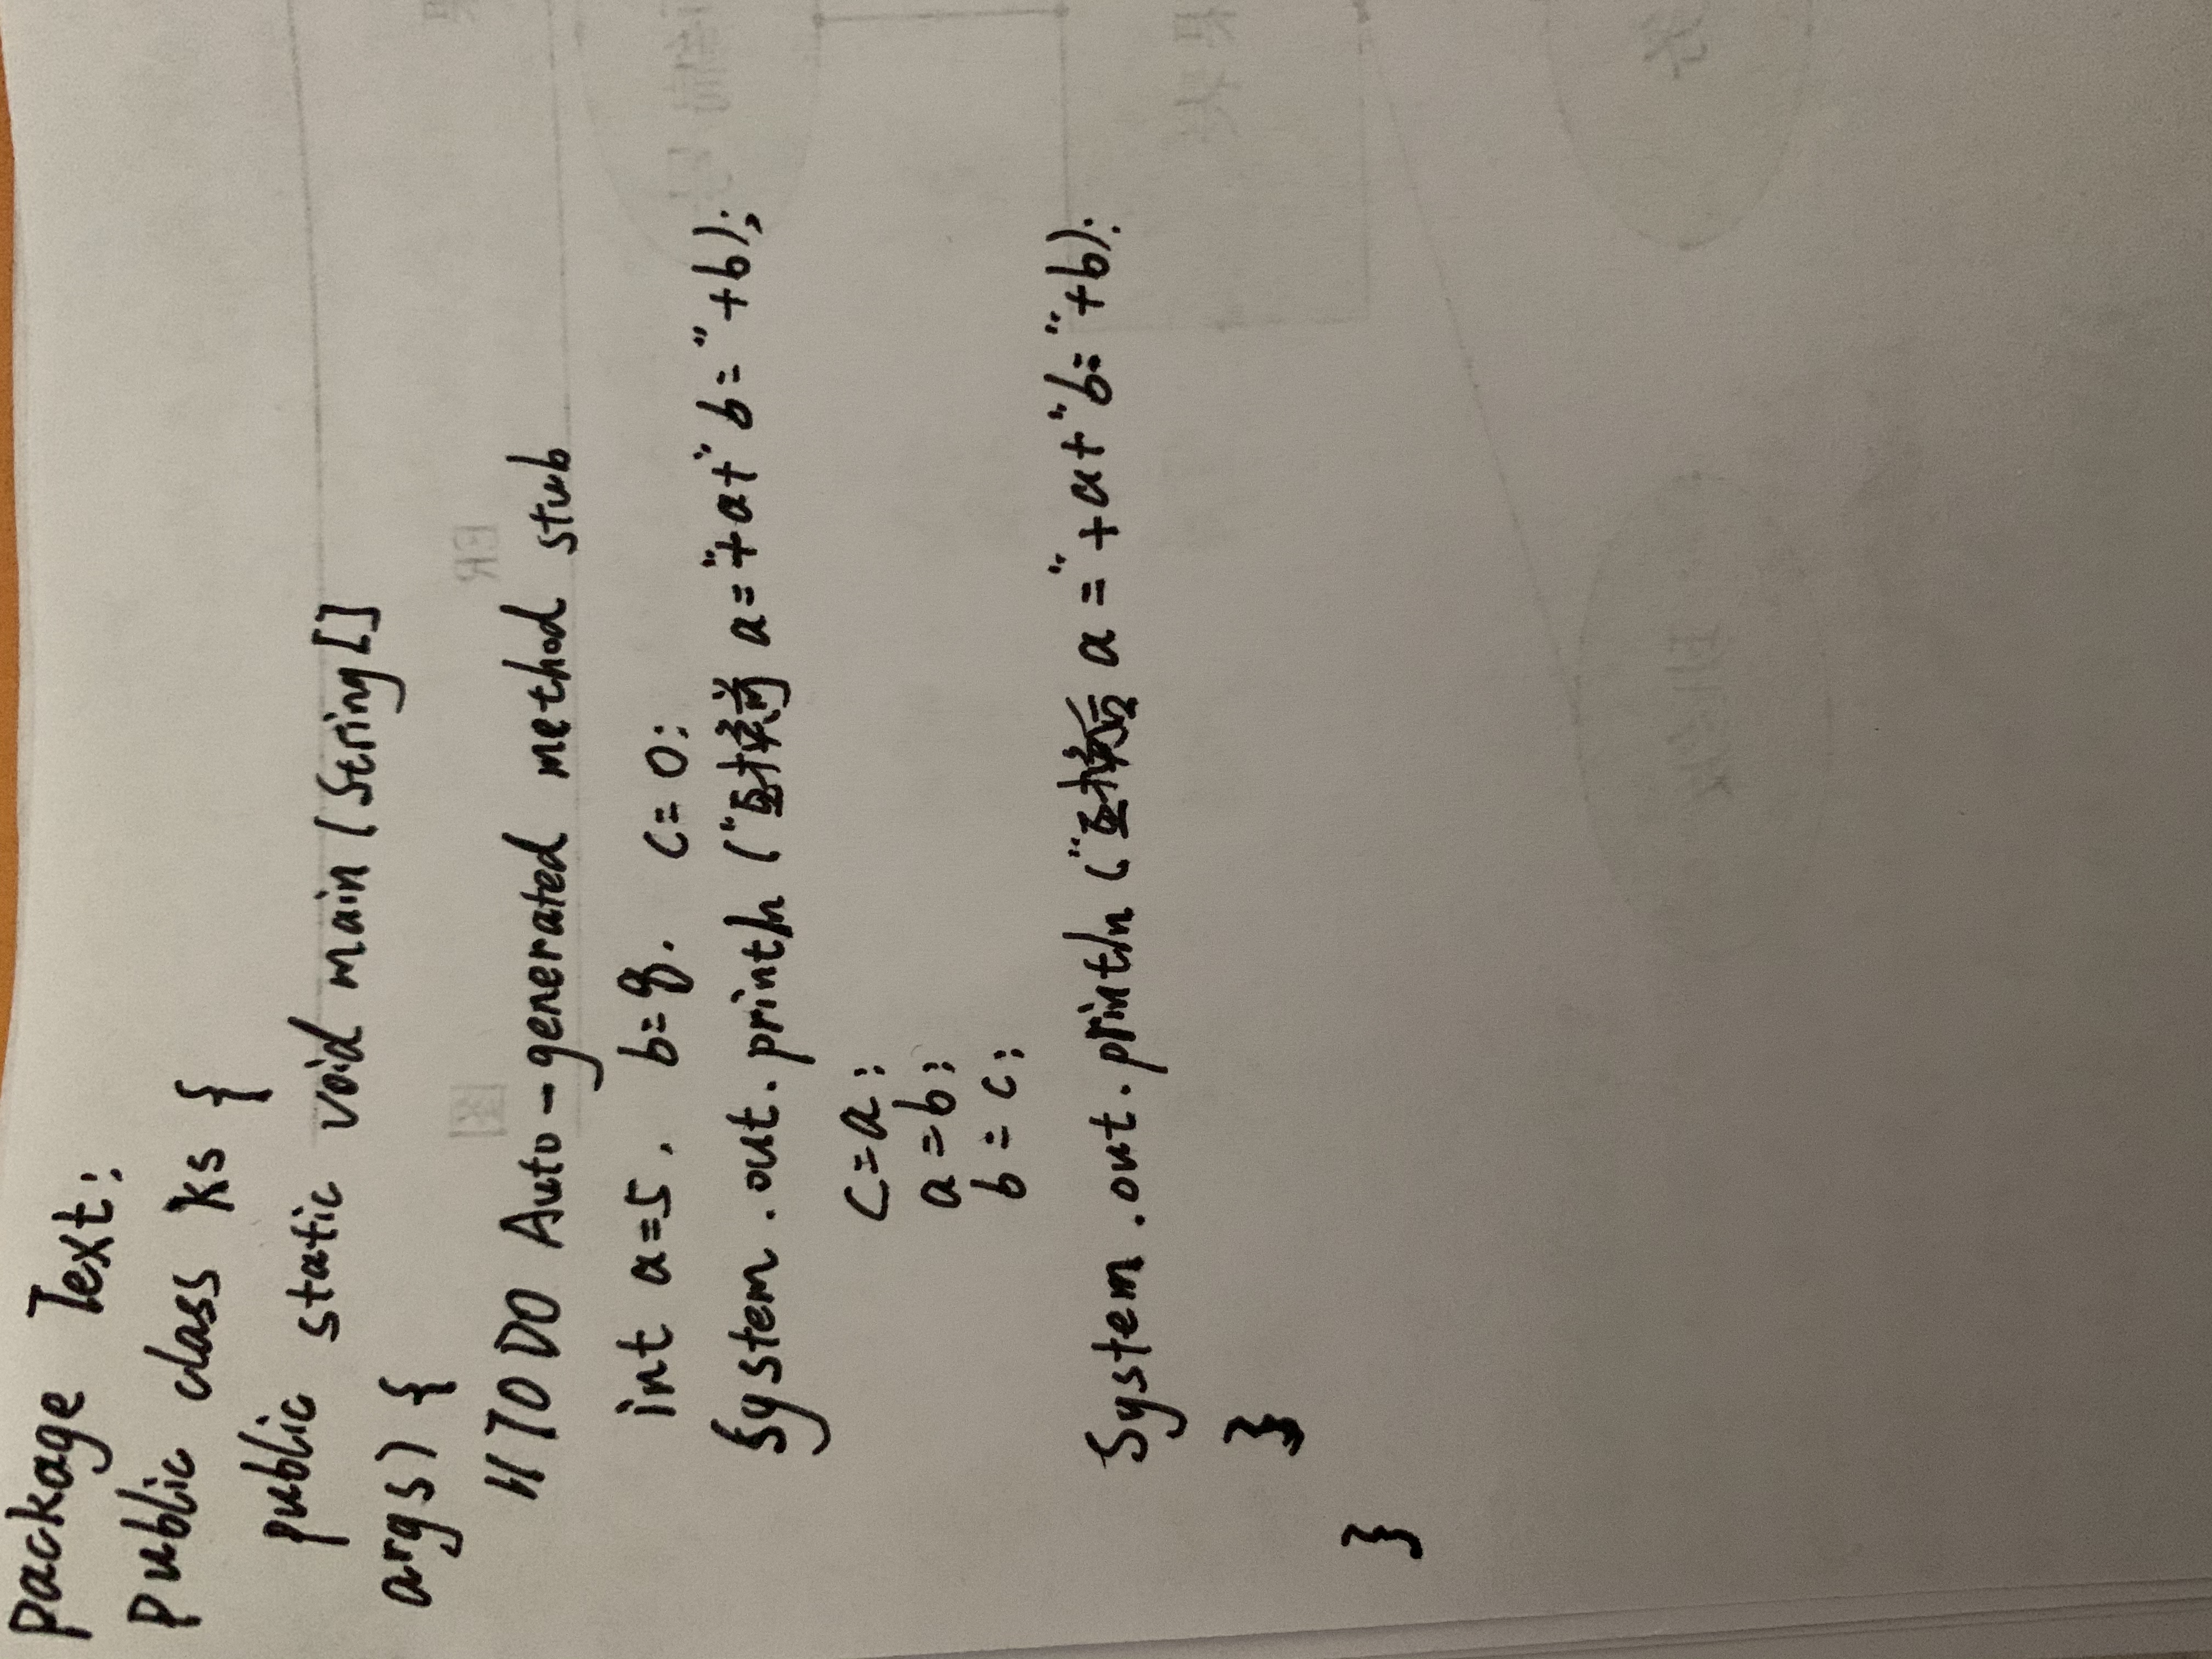 package Text;
public class ks {
public static void main (String[]
args) {
// TODO Auto-generated method stub
int a=5, b=9, c=0;
System.out.println ("互换前 a="+a+" b="+b);
c=a;
a=b;
b=c;
System.out.println ("互换后 a="+a+"b="+b);
}
}
ER
图